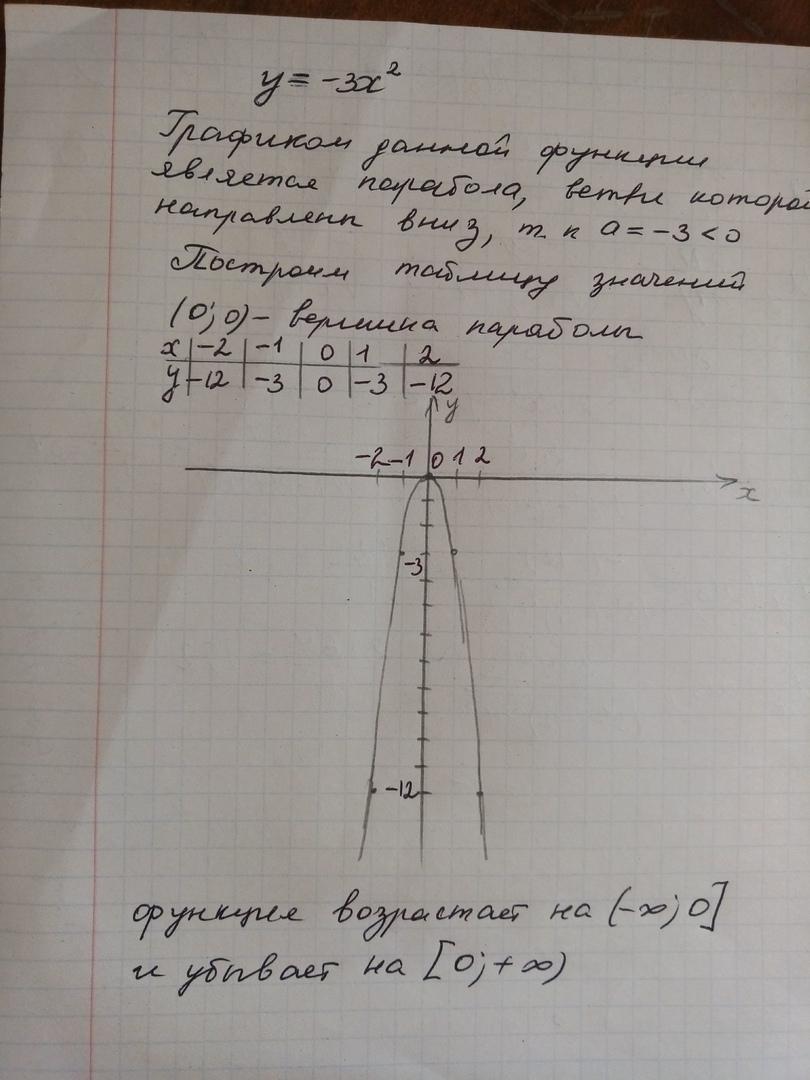 y = -3x²
Графиком данной функции
является парабола, ветви которой
направлены вниз, т к a = -3 < 0
Построим таблицу значений
(0; 0) - вершина параболы
x | -2 | -1 | 0 | 1 | 2
y | -12 | -3 | 0 | -3 | -12
y
-2 -1 0 1 2
x
-3
-12
функция возрастает на (-∞; 0]
и убывает на [0; +∞)